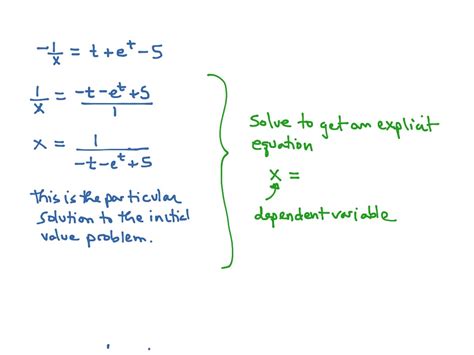 -1/x = t + e^t - 5
1/x = (-t - e^t + 5)/1
x = 1/(-t - e^t + 5)
This is the particular
solution to the initial
value problem.
Solve to get an explicit
equation
x =
dependent variable